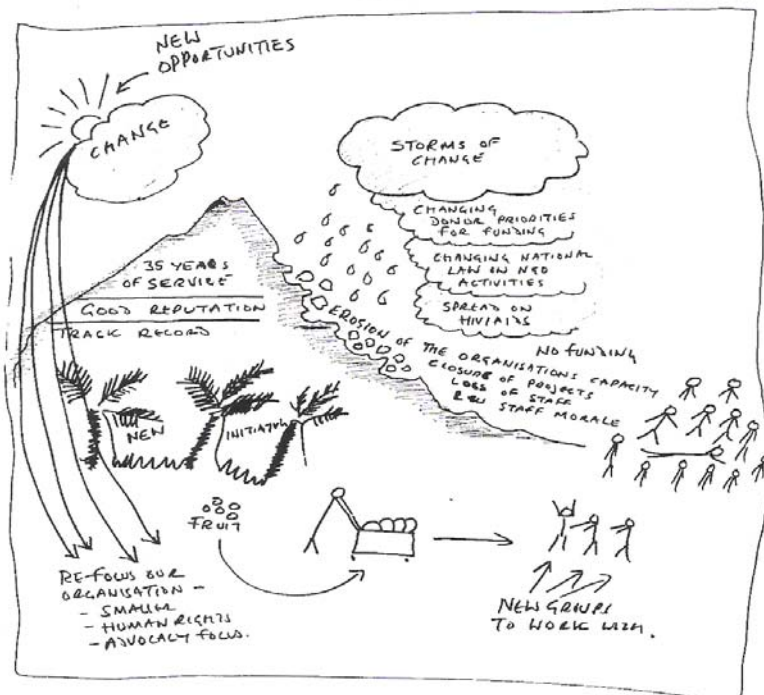 NEW
OPPORTUNITIES
CHANGE
STORMS OF
CHANGE
CHANGING
DONOR PRIORITIES
FOR FUNDING
CHANGING NATIONAL
LAW ON NGO
ACTIVITIES
SPREAD ON
HIV/AIDS
35 YEARS
OF SERVICE
GOOD REPUTATION
TRACK RECORD
NO FUNDING
EROSION OF THE ORGANISATIONS CAPACITY
CLOSURE OF PROJECTS
LOSS OF STAFF
STAFF MORALE
NEW
FRUIT
RE-FOCUS OUR
ORGANISATION -
- SMALLER
- HUMAN RIGHTS
- ADVOCACY FOCUS.
NEW GROUPS
TO WORK WITH.